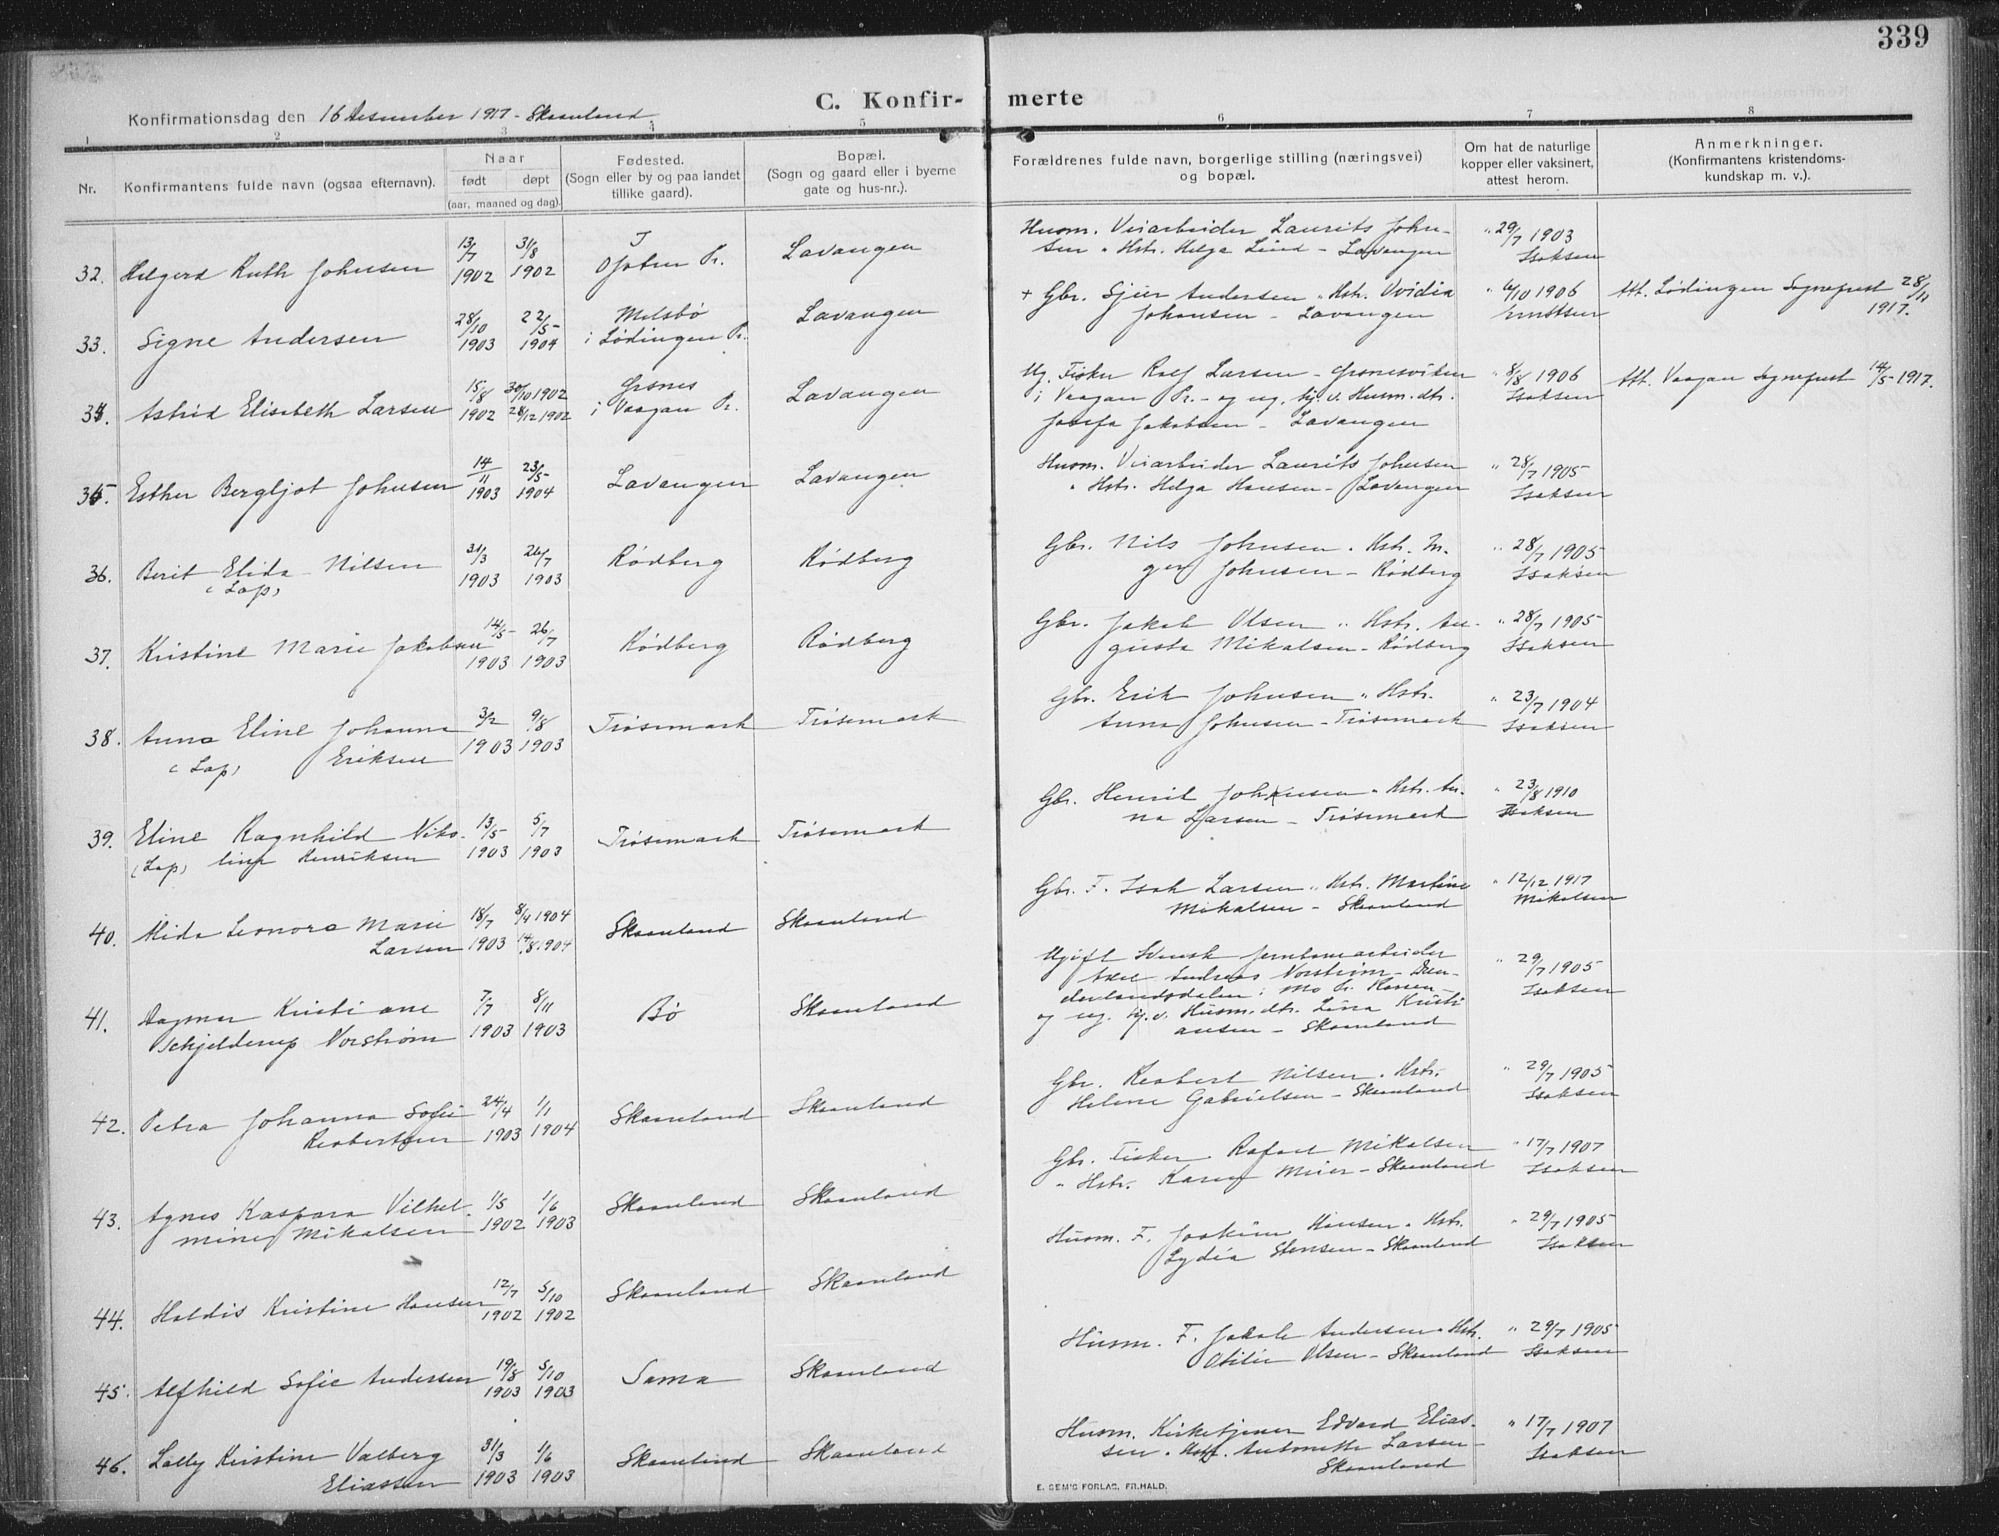 339
C. Konfir- merte
Konfirmationsdag den 16 Desember 1917 - Skaanland
1 2 3 4 5 6 7 8
Nr.
Konfirmantens fulde navn (ogsaa efternavn).
Naar
født døpt
(aar, maaned og dag).
Fødested.
(Sogn eller by og paa landet
tillike gaard).
Bopæl.
(Sogn og gaard eller i byerne
gate og hus-nr.).
Forældrenes fulde navn, borgerlige stilling (næringsvei)
og bopæl.
Om hat de naturlige
kopper eller vaksinert,
attest herom.
Anmerkninger.
(Konfirmantens kristendoms-
kundskap m. v.).
32. Helgerd Ruth Johnsen 13/7 1902 31/8 1902 I Ofoten Pr. Lavangen
Husm. Veiarbeider Laurits John-
sen " Hstr. Helga - Lavangen
" 29/7 1903
Isaksen
33. Signe Andersen 28/10 1903 22/5- 1904 i Lødingen Pr. Lavangen
+ Gbr. Andersen " Hstr. Ovidia
Johansen - Lavangen
" 6/10 1906
Ernstsen
Att. Lødingen Sogneprest 28/11
1917.
34. Astrid Elisabeth Larsen 15/8 1902 30/10 1902 28/12 1902 Grønes i Vaagan Pr. Lavangen
Ug. Fisker Rolf Larsen - Grønesviken
i Vaagan Pr. - og ug. hj.v. Husm.dtr.
Josefa Jakobsen - Lavangen
" 8/8 1906
Isaksen
Att. Vaagan Sogneprest 14/5 1917.
35. Esther Bergljot Johnsen 14/11 1903 23/5- 1904 Lavangen Lavangen
Husm. Veiarbeider Laurits Johnsen
" Hstr. Helga Hansen - Lavangen
" 28/7 1905
Isaksen
36. Berit Elida Nilsen 31/3 1903 26/7 1903 Rødberg Rødberg
(Lap)
Gbr. Nils Johnsen " Hstr. In-
ger Johnsen - Rødberg
" 28/7 1905
Isaksen
37. Kristine Marie Jakobsen 14/5- 1903 26/7 1903 Rødberg Rødberg
Gbr. Jakob Olsen " Hstr. Au-
gusta Mikalsen - Rødberg
" 28/7 1905
Isaksen
38. Anna Eline Johanna 3/2 1903 9/8 1903 Trøsemark Trøsemark
(Lap) Eriksen
Gbr. Erik Johnsen " Hstr.
Anna Johnsen - Trøsemark
" 23/7 1904
Isaksen
39. Eline Ragnhild Niko- 13/5 1903 5/7 1903 Trøsemark Trøsemark
(Lap) line Henriksen
Gbr. Henrik Johnsen " Hstr. An-
na Larsen - Trøsemark
" 23/8 1910
Isaksen
40. Alida Leonora Marie 18/7 1903 8/4 1904 14/8 1904 Skaanland Skaanland
Larsen
Gbr. F. Isak Larsen " Hstr. Martine
Mikalsen - Skaanland
" 12/12 1917
Mikalsen
41. Dagmar Kristiane 7/7 1903 8/11 1903 Bø Skaanland
Schjelderup Norstrøm
Ugift Svensk jernbanearbeider
Axel Andreas Norstrøm - Dun-
derlandsdalen i Mo Pr. Ranen -
og ug. hj.v. Husm.dtr. Lina Kristi
ansen - Skaanland
" 29/7 1905
Isaksen
42. Petra Johanna Sofie 24/4 1903 1/1 1904 Skaanland Skaanland
Reabertsen
Gbr. Reabert Nilsen " Hstr.
Helene Gabrielsen - Skaanland
" 29/7 1905
Isaksen
43. Agnes Kaspara Vilhel- 1/5 1902 1/6 1903 Skaanland Skaanland
mine Mikalsen
Gbr. Fisker Rafael Mikalsen
" Hstr. Karen Meier - Skaanland
" 17/7 1907
Isaksen
44. Haldis Kristine Hansen 12/7 1902 5/10 1902 Skaanland Skaanland
Husm. F. Joakim Hansen " Hstr.
Lydia Stensen - Skaanland
" 29/7 1905
Isaksen
45. Alfhild Sofie Andersen 19/8 1903 5/10 1903 Sama Skaanland
Husm. F. Jakob Andersen " Hstr.
Otilie Olsen - Skaanland
" 29/7 1905
Isaksen
46. Lally Kristine Valberg 31/3 1903 1/6 1903 Skaanland Skaanland
Eliassen
Husm. Kirketjener Edvard Elias-
sen " Hstr. Antonette Larsen -
Skaanland
" 17/7 1907
Isaksen
E. SEM'S FORLAG, FR.HALD.